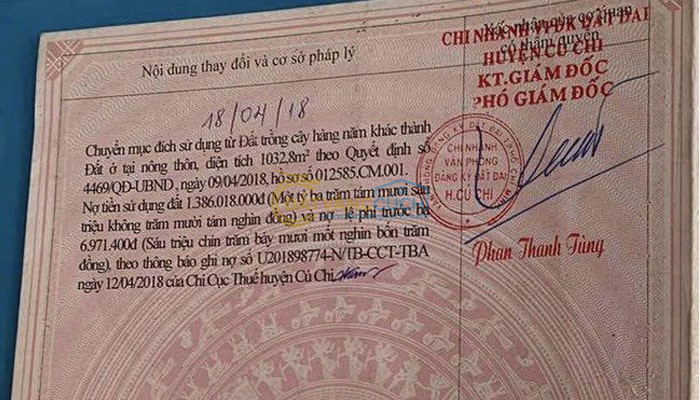 Nội dung thay đổi và cơ sở pháp lý
Xác nhận của cơ quan
có thẩm quyền
18/04/18
Chuyển mục đích sử dụng từ Đất trồng cây hàng năm khác thành
Đất ở tại nông thôn, diện tích 1032,8m² theo Quyết định số
4469/QĐ-UBND, ngày 09/04/2018, hồ sơ số 012585.CM.001.
Nợ tiền sử dụng đất 1.386.018.000đ (Một tỷ ba trăm tám mươi sáu
triệu không trăm mười tám nghìn đồng) và nợ lệ phí trước bạ
6.971.400đ (Sáu triệu chín trăm bảy mươi mốt nghìn bốn trăm
đồng), theo thông báo ghi nợ số U201898774-N/TB-CCT-TBA
ngày 12/04/2018 của Chi Cục Thuế huyện Củ Chi
CHI NHÁNH VPĐK ĐẤT ĐAI
HUYỆN CỦ CHI
KT.GIÁM ĐỐC
PHÓ GIÁM ĐỐC
CHI NHÁNH
VĂN PHÒNG
ĐĂNG KÝ ĐẤT ĐAI
H.CỦ CHI
Phan Thanh Tùng